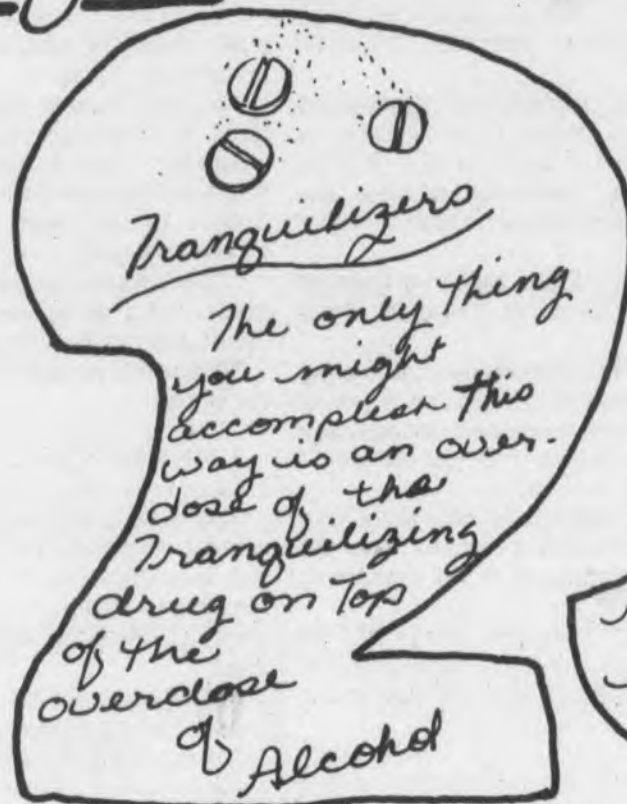 Tranquilizers
The only thing
you might
accomplish this
way is an over-
dose of the
Tranquilizing
drug on Top
of the
overdose
of Alcohol